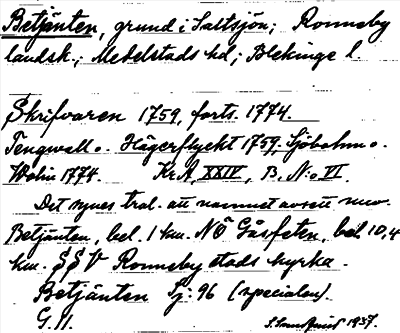 Betjänten, grund i Saltsjön; Ronneby
landsk.; Medelstads hd; Blekinge l.
Skrifvaren 1759, forts. 1774.
Tengwall o. Hägerflyckt 1759. Sjöbohm o.
Wolin 1774. KrA, XXIV, B, No VI.
Det synes trol. att namnet avsett nuv.
Betjänten, bel. 1 km. NÖ Gåsfeten, bel. 10,4
km. SSV Ronneby stads kyrka.
Betjänten Sj: 96 (specialen).
G. H. 1937.